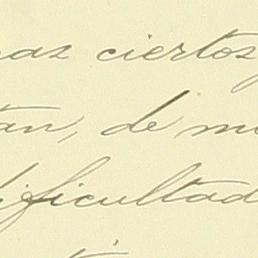 mas ciertos
tan, de m
dificultad